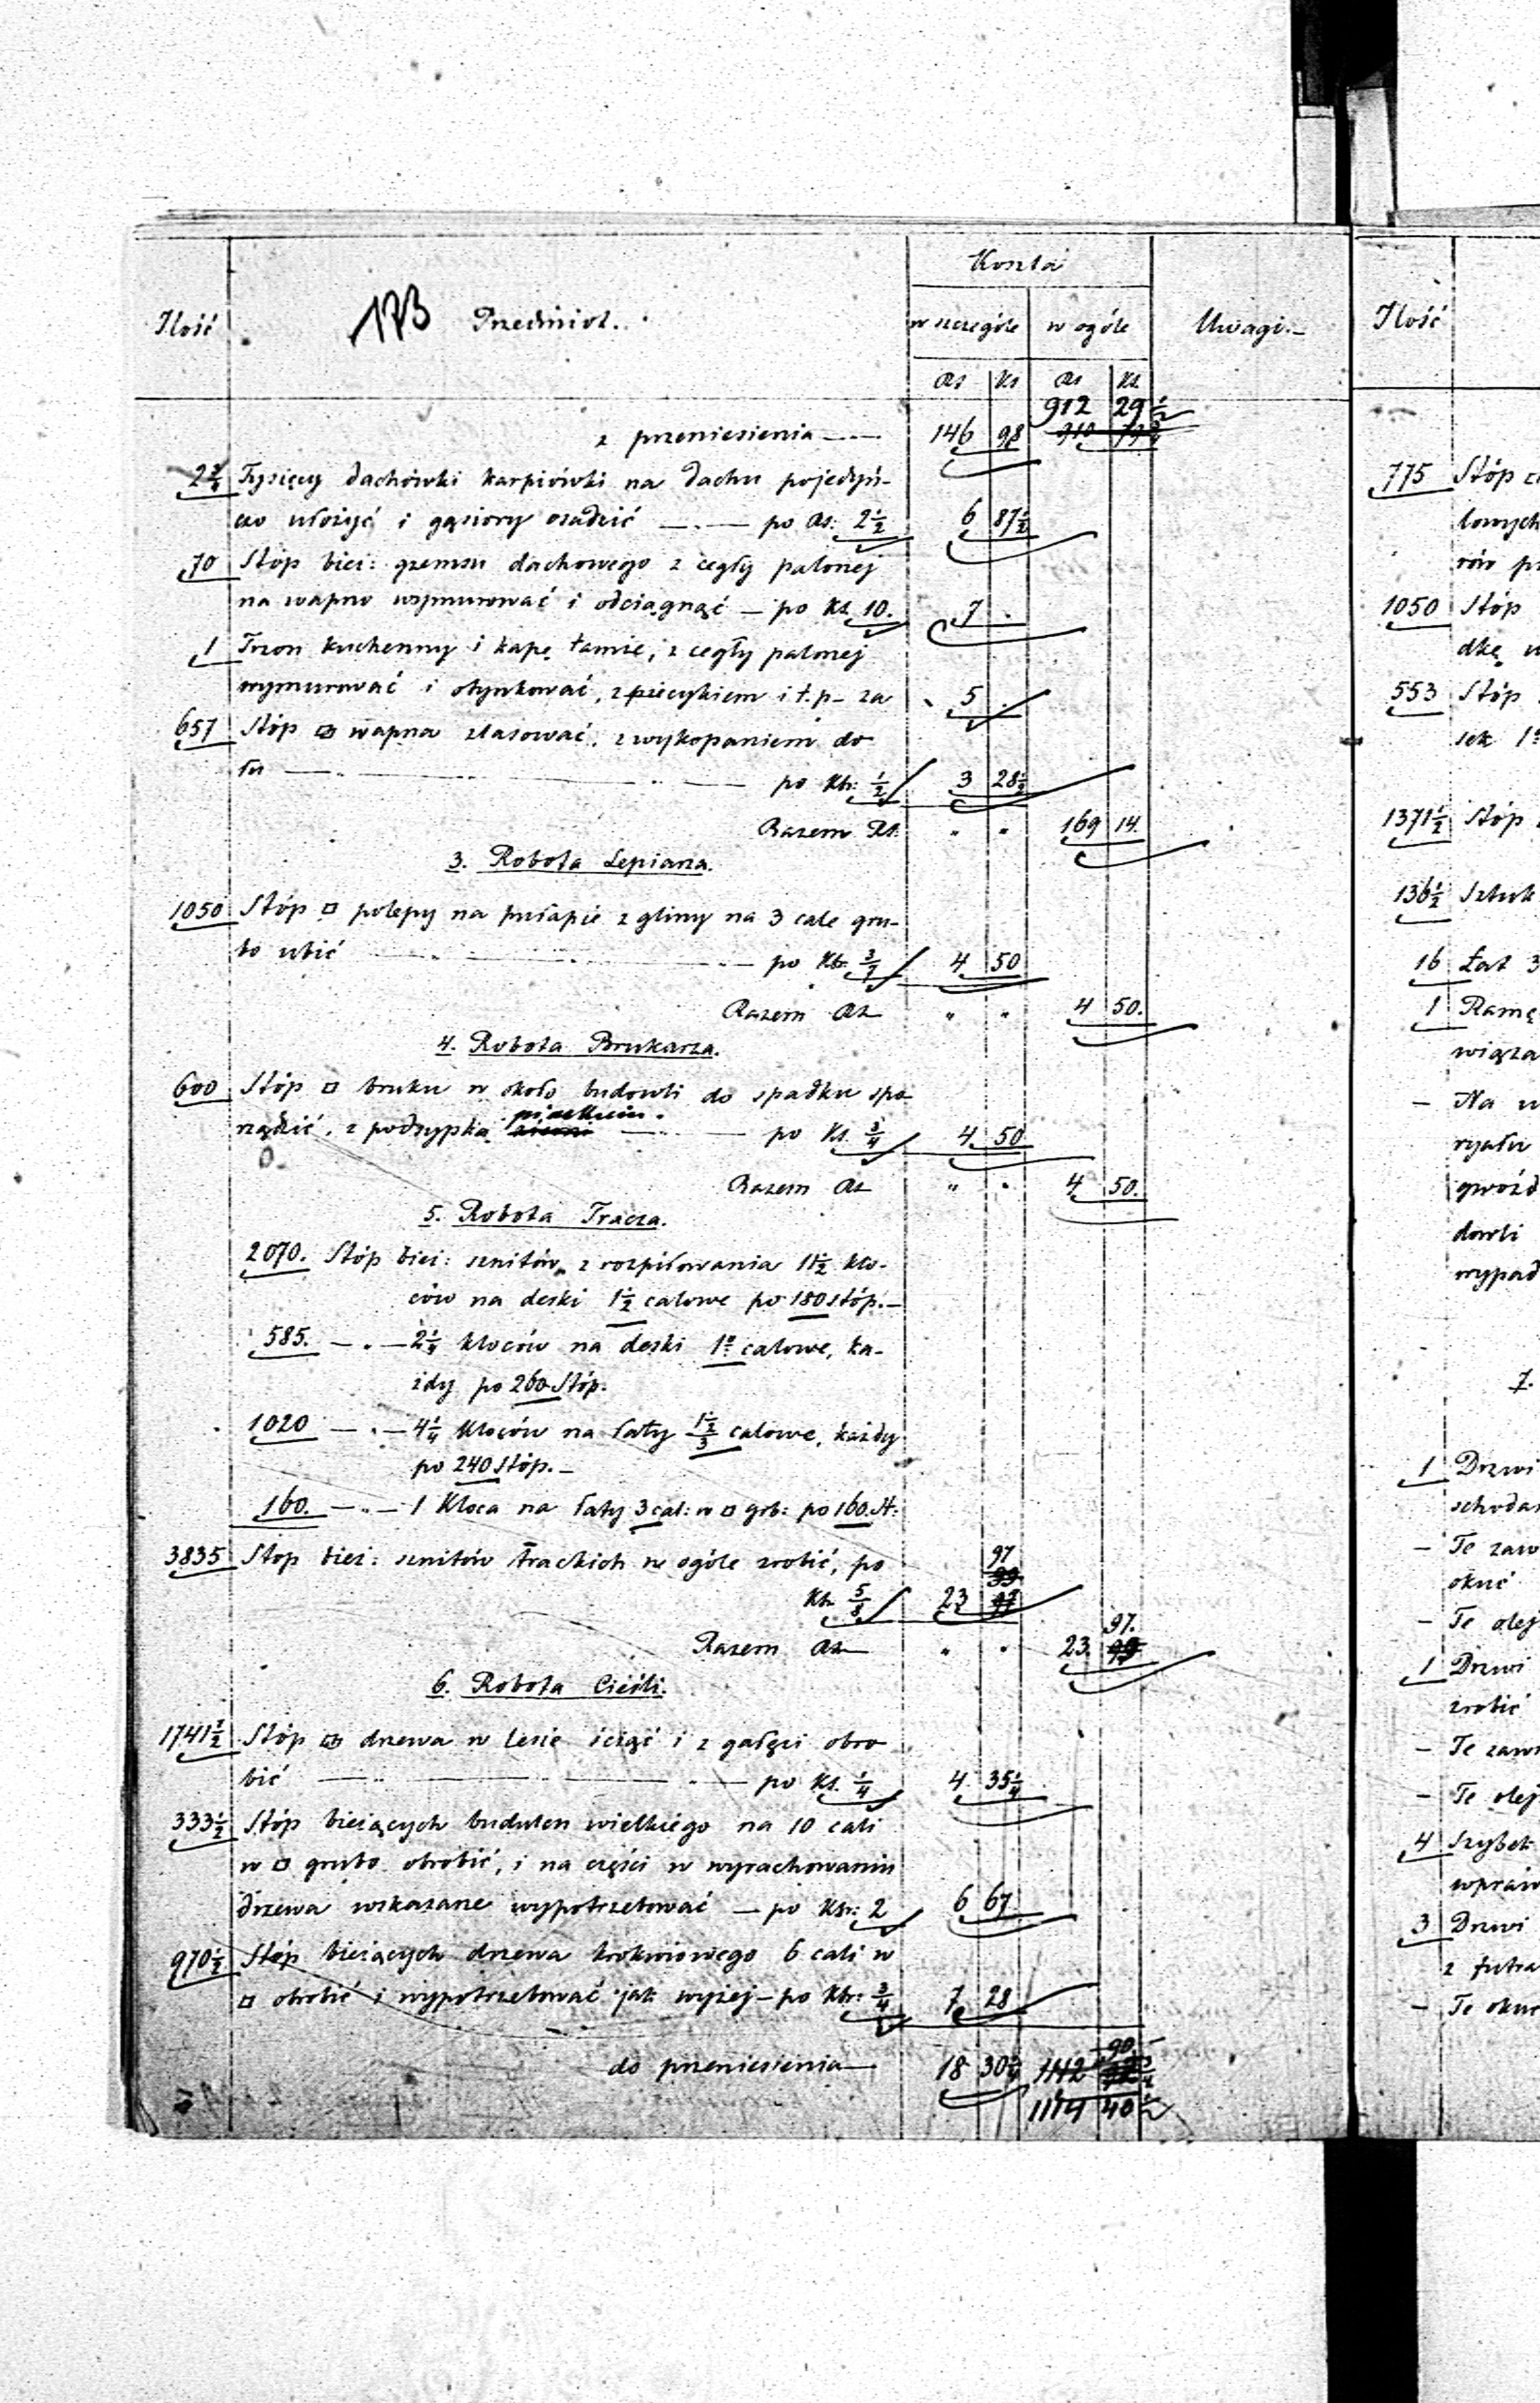 Ilość
173
Przedmiot.
Koszta
w szczególe
w ogóle
Uwagi.–
Rs Ks Rs Ks
912 29 1/2
z przeniesienia —.— 146 98
2 3/4 Tysięcy dachówki karpiówki na dachu pojedyń-
czo ułożyć i gąsiory osadzić —.— po Rs: 2 1/2 6 87 1/2
70 Stóp bież: gzemsu dachowego z cegły palonej
na wapno wymurować i odciągnąć — po Ks. 10. 7 .
1 Trzon kuchenny i kapę tamże, z cegły palonej
wymurować i otynkować, z piecykiem i t.p– za 5 .
657 Stóp wapna zlasować, z wykopaniem do
łu — po Kb: 1/2 3 28 1/2
Razem Rs. " " 169 14.
3. Robota Lepiarza.
1050 Stóp □ polepy na pułapie z gliny na 3 cale gru-
bo ubić — po Kb. 3/7 4 50
Razem Rs " " 4 50.
4. Robota Brukarza.
600 Stóp □ bruku w około budowli do spadku spo
piaskiem.
rządzić, z podsypką — po Ks. 3/4 4 50
Razem Rs " " 4 50.
5. Robota Tracza.
2070. Stóp bież: sznitów z rozpiłowania 11 1/2 klo-
ców na deski 1 1/2 calowe po 180 stóp.–
585. —.— 2 1/4 kloców na deski 1º calowe, ka-
żdy po 260 Stóp.
1020 —.— 4 1/4 kloców na łaty 1 1/2/3 calowe, każdy
po 240 Stóp.–
160. —.— 1 Kloca na łaty 3 cal: w □ grb: po 160. St:
3835 Stop bież: sznitów trackich w ogóle zrobić, po
97
Kb. 5/8 23
97.
Razem Rs " . 23.
6. Robota Cieśli.
1741 1/2 Stóp drzewa w lesie ściąć i z gałęzi obro
bić — po Ks. 1/4 4 35 1/4
333 1/2 Stóp bieżących budulcu wielkiego na 10 cali
w □ grubo obrobić, i na części w wyrachowaniu
drzewa wskazane wypotrzebować — po Kb: 2 6 67
970 1/2 Stóp bieżących drzewa krokwiowego 6 cali w
□ obrobić i wypotrzebować jak wyżej – po Kb: 3/4 7 28
90.
do przeniesienia — 18 30 1/4 1112
1114 40 1/2
Ilość
775 Stóp
lowych
rów
1050 Stóp
dkę
553 Stóp
sek
1371 1/2 Stóp
136 1/2 Sztuk
16 Łat 3
1 Ramę
wiąza
– Na
ryału
gwóźd
dowli
wypad
7.
1 Drzwi
schoda
– Te zaw
okuć
– Te olej
1 Drzwi
zrobić
– Te zaw
– Te olej
4 Szybek
wpraw
3 Drzwi
z futra
– Te okuć